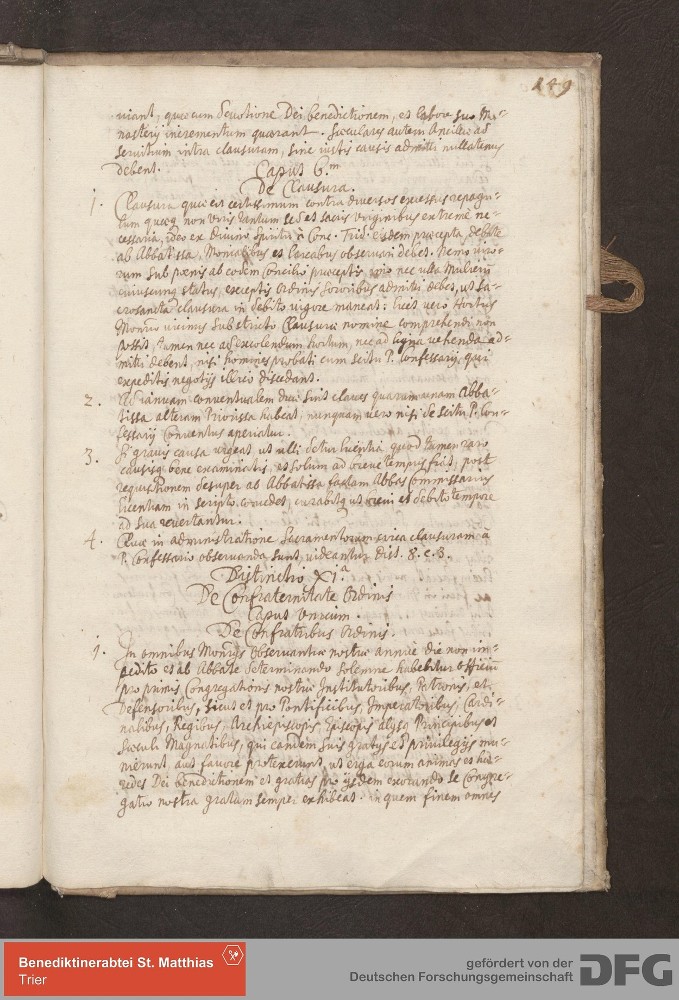 149
uiant, quae cum devotione Dei benedictionem, et labore suo Mo-
nasterij incrementum quaerant. Saeculares autem Ancillae ad
servitium intra clausuram, sine iustis causis admitti nullatenus
debent.
Caput 6.m
De Clausura.
1. Clausura quae est certissimum contra diversos excessus repagu-
lum quaeq non viris tantum sed et sacris virginibus extreme ne-
cessaria, ideo ex Divino Spiritu à Conc. Trid. eisdem praecepta, debite
ab Abbatissa, Monialibus et Laicabus observari debet. Nemo viro-
rum sub poenis ab eodem Concilio praeceptis, imo nec ulla Mulierū
cuiuscunq status, exceptis Ordinis Sororibus admitti debet, ut Sa-
crosancta clausura in debito vigore maneat: Licet vero Hortus
Monrio vicinus sub stricto Clausurae nomine comprehendi non
possit, tamen nec ad excolendum hortum, nec ad ligna vehenda ad-
mitti debent, nisi homines probati cum scitu P. Confessarij, qui
expeditis negotijs illico discedant.
2. Ad ianuam conventualem duae sint claves quarum unam Abba-
tissa alteram Priorissa habeat, nunquam vero nisi de scitu P. Con-
fessarij Conventus aperiatur.
3. Si gravis causa urgeat, ut ulli detur licentia, quod tamen raro
causisq bene examinatis, et solum ad breve tempus fiat, post
requisitionem desuper ab Abbatissa factam Abbas Commissarius
licentiam in scripto concedet, curabitq ut debito tempore
ad sua revertantur.
4. Quae in administratione Sacramentorum circa clausuram à
P. Confessario observanda sunt, videantur Dist. 8. c. 3.
Distinctio XI.a
De Confraternitate Ordinis
Caput Unicum.
De Confratribus Ordinis.
1. In omnibus Monrijs observantiae nostrae annue die non im-
pedito et ab Abbate determinando solemne habebitur officiū
pro primis Congregationis nostrae Institutoribus, Patronis, et
Defensoribus, sicut et pro Pontificibus, Imperatoribus, Cardi-
nalibus, Regibus, Archiepiscopis, Episcopis alijsq Principibus et
Saeculi Magnatibus, qui eandem suis gratijs et privilegijs mu-
nierunt, aut favore protexerunt, ut erga eorum animas et hae-
redes Dei benedictionem et gratias pro ijsdem exorando se Congre-
gatio nostra gratam semper exhibeat. in quem finem omnes
Benediktinerabtei St. Matthias
Trier
gefördert von der
Deutschen Forschungsgemeinschaft
DFG